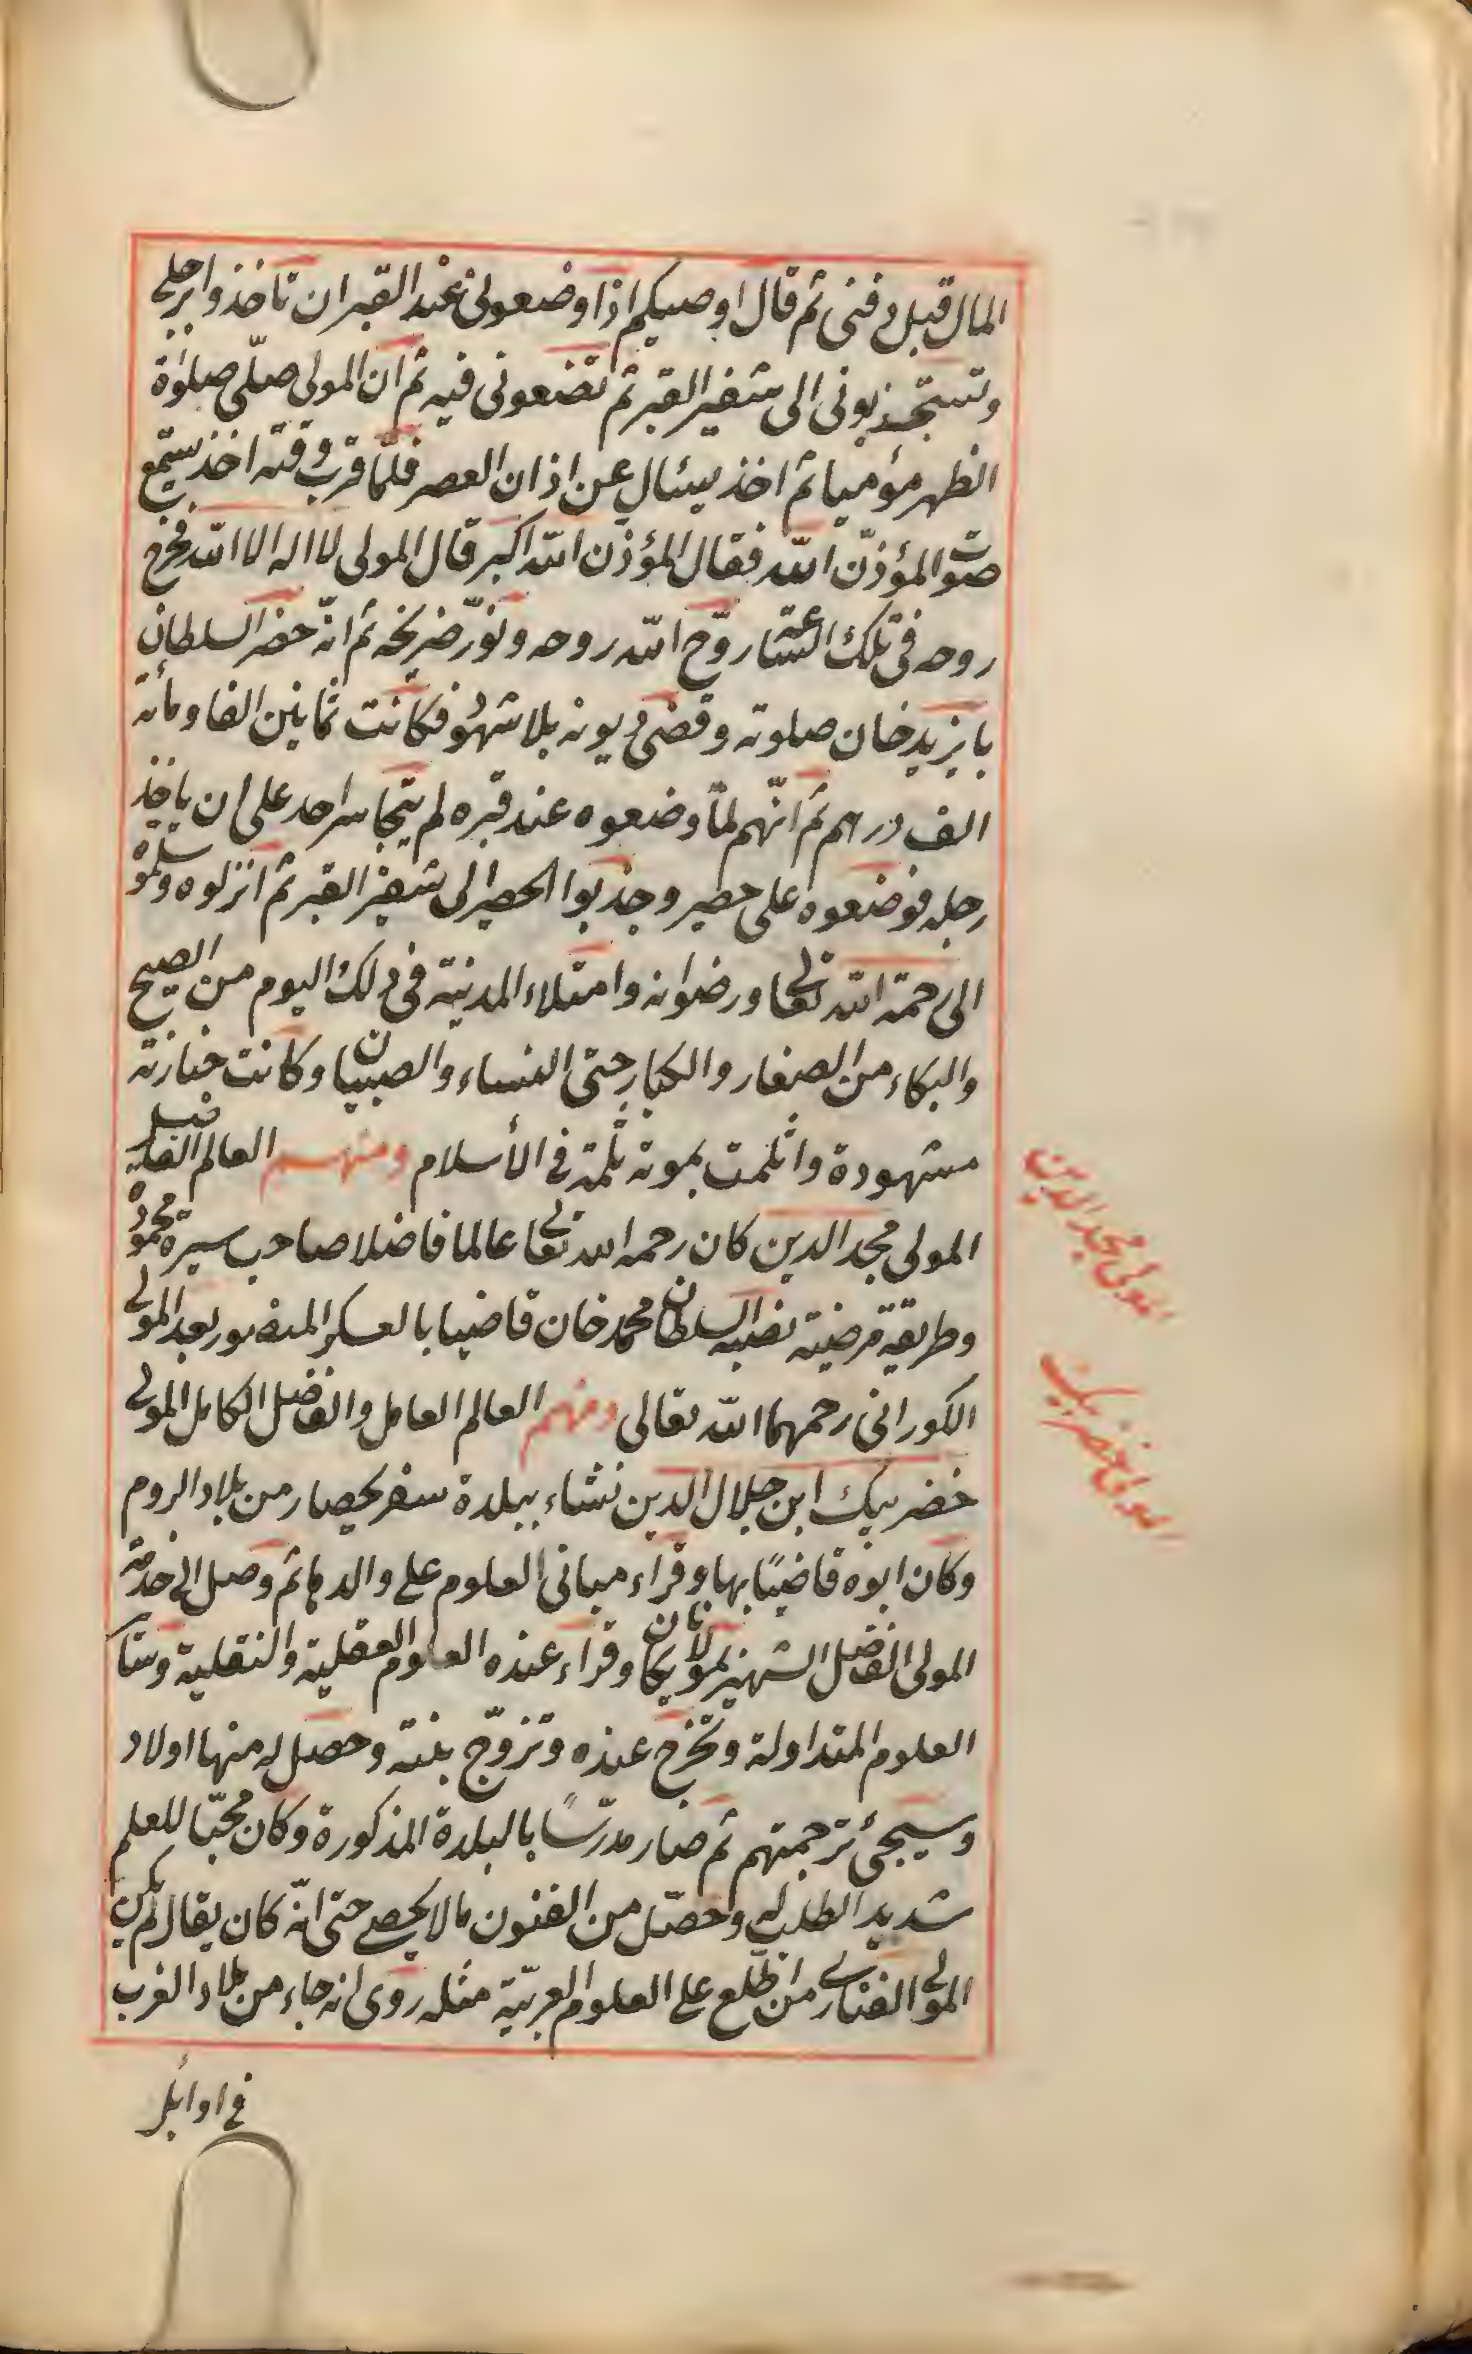 المال قبل دفنى ثم قال اوصيكم اذا وضعونى عند القبر ان تاخذوا برجلى
وتستجذبونى الى شفير القبر ثم تضعونى فيه ثم ان المولى صلّى صلوٰة
الظهر مؤميا ثم اخذ يسئال عن اذان العصر فلمّا قرب وقته اخذ يستمع
صوت المؤذّن الله فقال المؤذن الله اكبر قال المولى لا اله الا الله فخرج
روحه فى تلك الساعة روّح الله روحه ونوّر ضريحه ثم انّه حضر السلطان
بايزيد خان صلوته وقضى ديونه بلا شهود فكانت ثمانين الفا ومأئة
الف درهم ثم انّهم لمّا وضعوه عند قبره لم يتجاسر احد على ان ياخذ
رجله فوضعوه على حصير وجذبوا الحصير الى شفير القبر ثم انزلوه وسلّموه
الى رحمة الله تعالى ورضوانه وامتلاء المدينة فى ذلك اليوم من الصيح
والبكاء من الصغار والكبار حتى النساء والصبيان وكانت جنازته
مشهودة وانثلمت بموته ثلمة فى الأسلام ومنهم العالم الفاضل
المولى مجد الدين كان رحمه الله تعالى عالما فاضلا صاحب سيرة محمودة
وطريقة مرضية نصبه السلطان محمد خان قاضيا بالعسكر المنصور بعد المولى
الكورانى رحمهما الله تعالى ومنهم العالم العامل والفاضل الكامل المولى
خضر بيك ابن جلال الدين نشاء ببلدة سفريحصار من بلاد الروم
وكان ابوه قاضيًا بها وقراء مبانى العلوم على والدها ثم وصل الى خدمة
المولى الفاضل الشهير بمولانا يكان وقراء عنده العلوم العقلية والنقلية وسائر
العلوم المتداولة وتخرج عنده وتزوّج بنته وحصل له منها اولاد
وسيجئ ترجمتهم ثم صار مدرّسًا بالبلدة المذكورة وكان محبّا للعلم
شديد الطلب له وحصّل من الفنون مالا يحصى حتى انّه كان يقال لم يكن
المولى الفنارى من اطّلع على العلوم العربيّة مثله روى انه جاء من بلاد العرب
فى اوائل
المولى مجد الدين
المولى خضر بيك